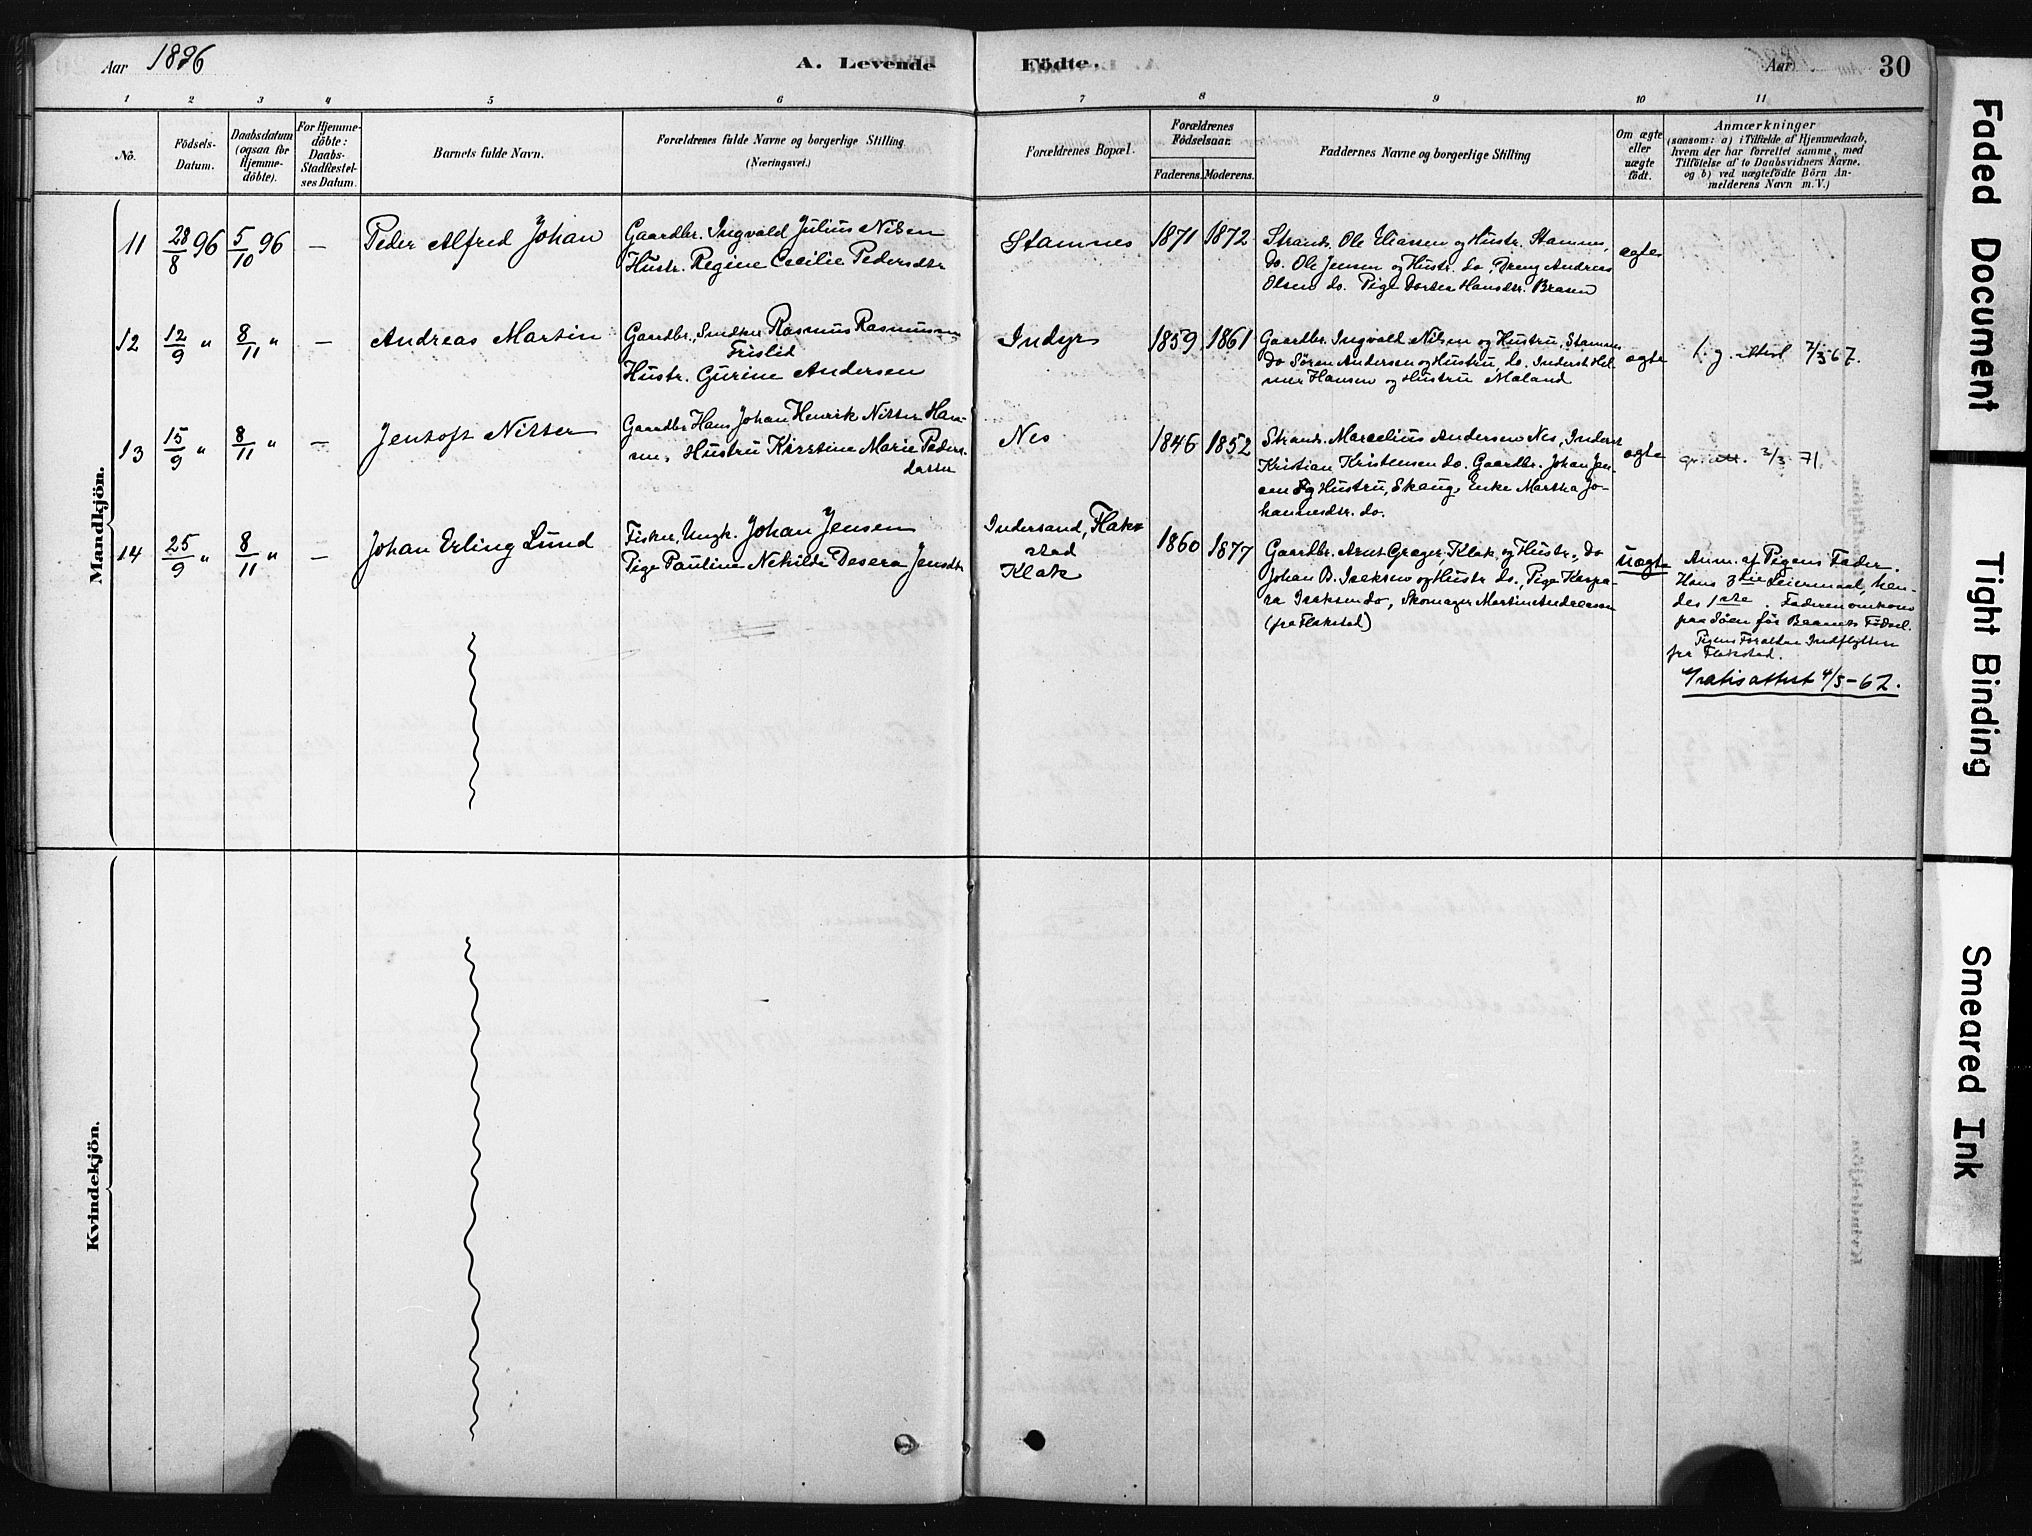 Aar 1896
A. Levende Födte.
Aar
30
1 2 3 4 5 6 7 8 9 10 11
No.
Födsels-
Datum.
Daabsdatum
(ogsaa for
Hjemme-
döbte).
For Hjemme-
döbte:
Daabs-
Stadfæstel-
ses Datum.
Barnets fulde Navn.
Forældrenes fulde Navne og borgerlige Stilling
(Næringsvei.)
Forældrenes Bopæl.
Forældrenes
Fødselsaar.
Faderens. Moderens.
Faddernes Navne og borgerlige Stilling
Om ægte
eller
uægte
födt.
Anmærkninger
(saasom: a) i Tilfælde af Hjemmedaab,
hvem der har forrettet samme, med
Tilföielse af to Daabsvidners Navne.
og b) ved uægtefödte Börn An-
melderens Navn m.V.)
Mandkjön.
11 28/8 96 5/10 96 —
Peder Alfred Johan
Gaardbr. Ingvald Julius Nilsen
Hustr. Regine Cecilie Pedersdtr
Stamnes
1871 1872
Strands. Ole Eliassen og Hustr. Stamnes,
do. Ole Jensen og Hustr. do, Dreng Andreas
Olsen do. Pige Dortea Hansdtr.
ægte
12 12/9 " 8/11 " —
Andreas Martin
Gaardbr. Rasmus Rasmussen
Frislid
Hustr. Gurine Andersen
Indyr
1859 1861
Gaardbr. Ingvald Nilsen og Hustru, Stamnes
do Sören Andersen og Hustru do. Inderst Hel-
mer Hansen og Hustru Maland
ægte
13 15/9 " 8/11 " —
Jentoft Nitter
Gaardbr Hans Johan Henrik Nitter Han-
sen, Hustru Kirstine Marie Peders-
datter
Nes
1846 1852
Strands. Marcelius Andersen Nes, Inderst
Kristian Kristensen do. Gaardbr. Johan Jen-
sen og Hustru, Skauge Enke Martha Jo-
hannesdtr. do.
ægte
gr. att. 2/3 71.
14 25/9 " 8/11 " —
Johan Erling Lund
Fisker, Ungk. Johan Jensen
Pige Pauline Nekilde Desera Jensdtr
Indersand, Flak-
stad
Klak
1860 1877
Gaardbr. Arnt Greger, Klak, og Hustr., do
Johan B. Iseksen og Hustr do., Pige Kaspa-
ra Iseksen do, Skomager Martin Andersen
(fra Flakstad)
uægte
Anm. af Pigens Fader.
Hans 3die Leiermaal, hen-
des 1ste. Faderen omkom
paa Söen för Barnets Födsel.
Pigens Forældre Indflyttere
fra Flakstad.
Gratisattest 4/5-62.
Kvindekjön.
Faded Document
Tight Binding
Smeared Ink